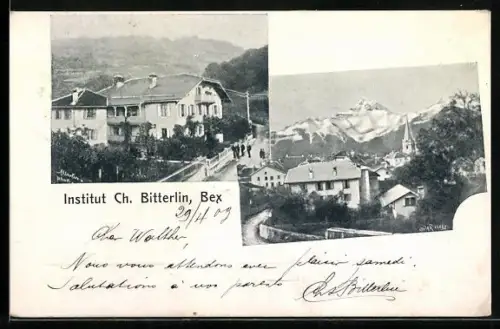 Institut Ch. Bitterlin, Bex
29/4 03
Cher Walther,
Nous vous attendons avec plaisir samedi.
Salutations à vos parents Chs Bitterlin